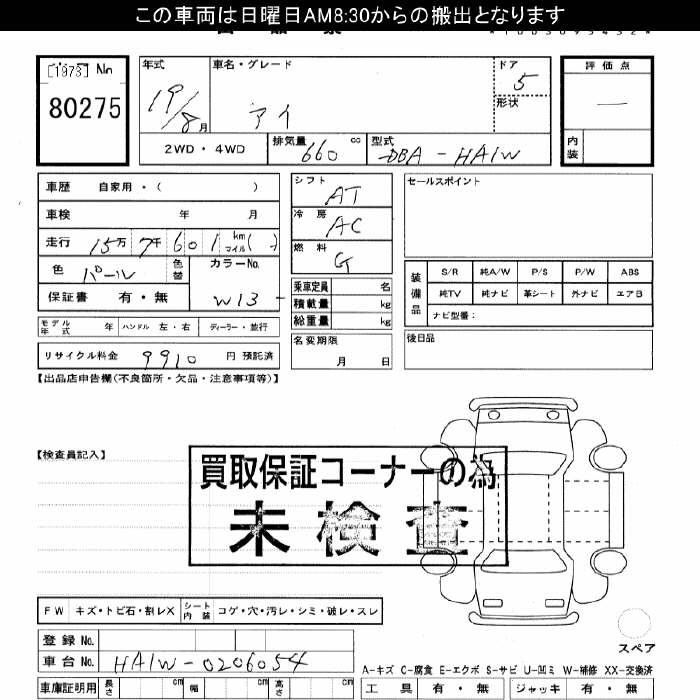 この車両は日曜日AM8:30からの搬出となります
[1973] No
80275
年式 車名・グレード ドア 5
19/8月 アイ 形状
2WD・4WD 排気量 660 cc 型式 DBA-HA1W
評価点
―
内装
車歴 自家用・( )
車検 年 月
走行 15万 7千 601 km マイル( )
色 パール 色替 カラーNo. W13
保証書 有・無
モデル年式 年 ハンドル 左・右 ディーラー・並行
リサイクル料金 9910 円 預託済
シフト AT
冷房 AC
燃料 G
乗車定員 名
積載量 kg
総重量 kg
名変期限
月 日
セールスポイント
装備品 S/R 純A/W P/S P/W ABS
純TV 純ナビ 革シート 外ナビ エアB
ナビ型番:
後日品
【出品店申告欄(不良箇所・欠品・注意事項等)】
【検査員記入】
買取保証コーナーの為
未検査
FW キズ・トビ石・割レX シート内装 コゲ・穴・汚レ・シミ・破レ・スレ
登録 No.
車台 No. HA1W-0206054
車庫証明用 長さ cm 幅 cm 高さ cm
スペア
A-キズ C-腐食 E-エクボ S-サビ U-凹ミ W-補修 XX-交換済
工具 有・無 ジャッキ 有・無